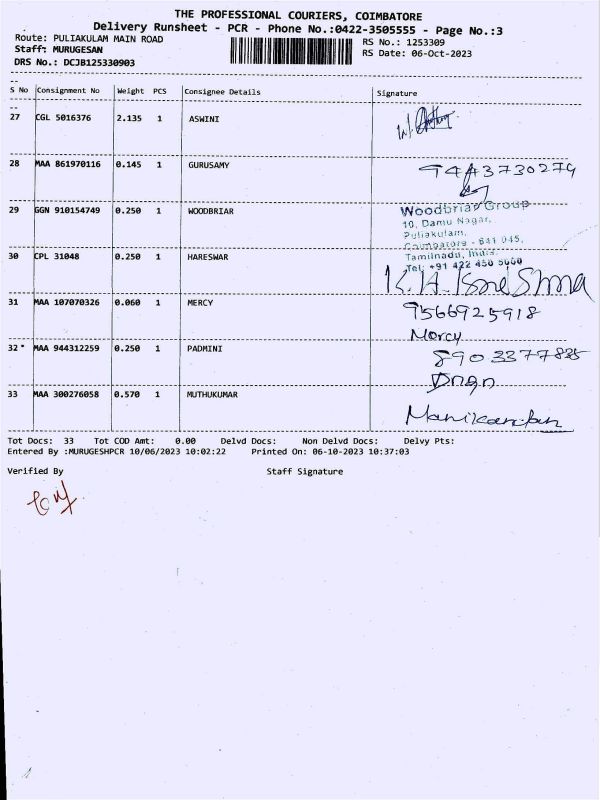 THE PROFESSIONAL COURIERS, COIMBATORE
Delivery Runsheet - PCR - Phone No.:0422-3505555 - Page No.:3
Route: PULIAKULAM MAIN ROAD RS No.: 1253309
Staff: MURUGESAN RS Date: 06-Oct-2023
DRS No.: DCJB125330903
S No Consignment No Weight PCS Consignee Details Signature
27 CGL 5016376 2.135 1 ASWINI
28 MAA 861970116 0.145 1 GURUSAMY 9443730279
29 GGN 910154749 0.250 1 WOODBRIAR Woodbriar Group
10, Damu Nagar,
Puliakulam,
Coimbatore - 641 045,
30 CPL 31048 0.250 1 HARESWAR Tamilnadu, India.
Tel: +91 422 450 5660
31 MAA 107070326 0.060 1 MERCY 9566925918
Mercy
32* MAA 944312259 0.250 1 PADMINI 8903377835
33 MAA 300276058 0.570 1 MUTHUKUMAR Manikandan
Tot Docs: 33 Tot COD Amt: 0.00 Delvd Docs: Non Delvd Docs: Delvy Pts:
Entered By :MURUGESHPCR 10/06/2023 10:02:22 Printed On: 06-10-2023 10:37:03
Verified By Staff Signature